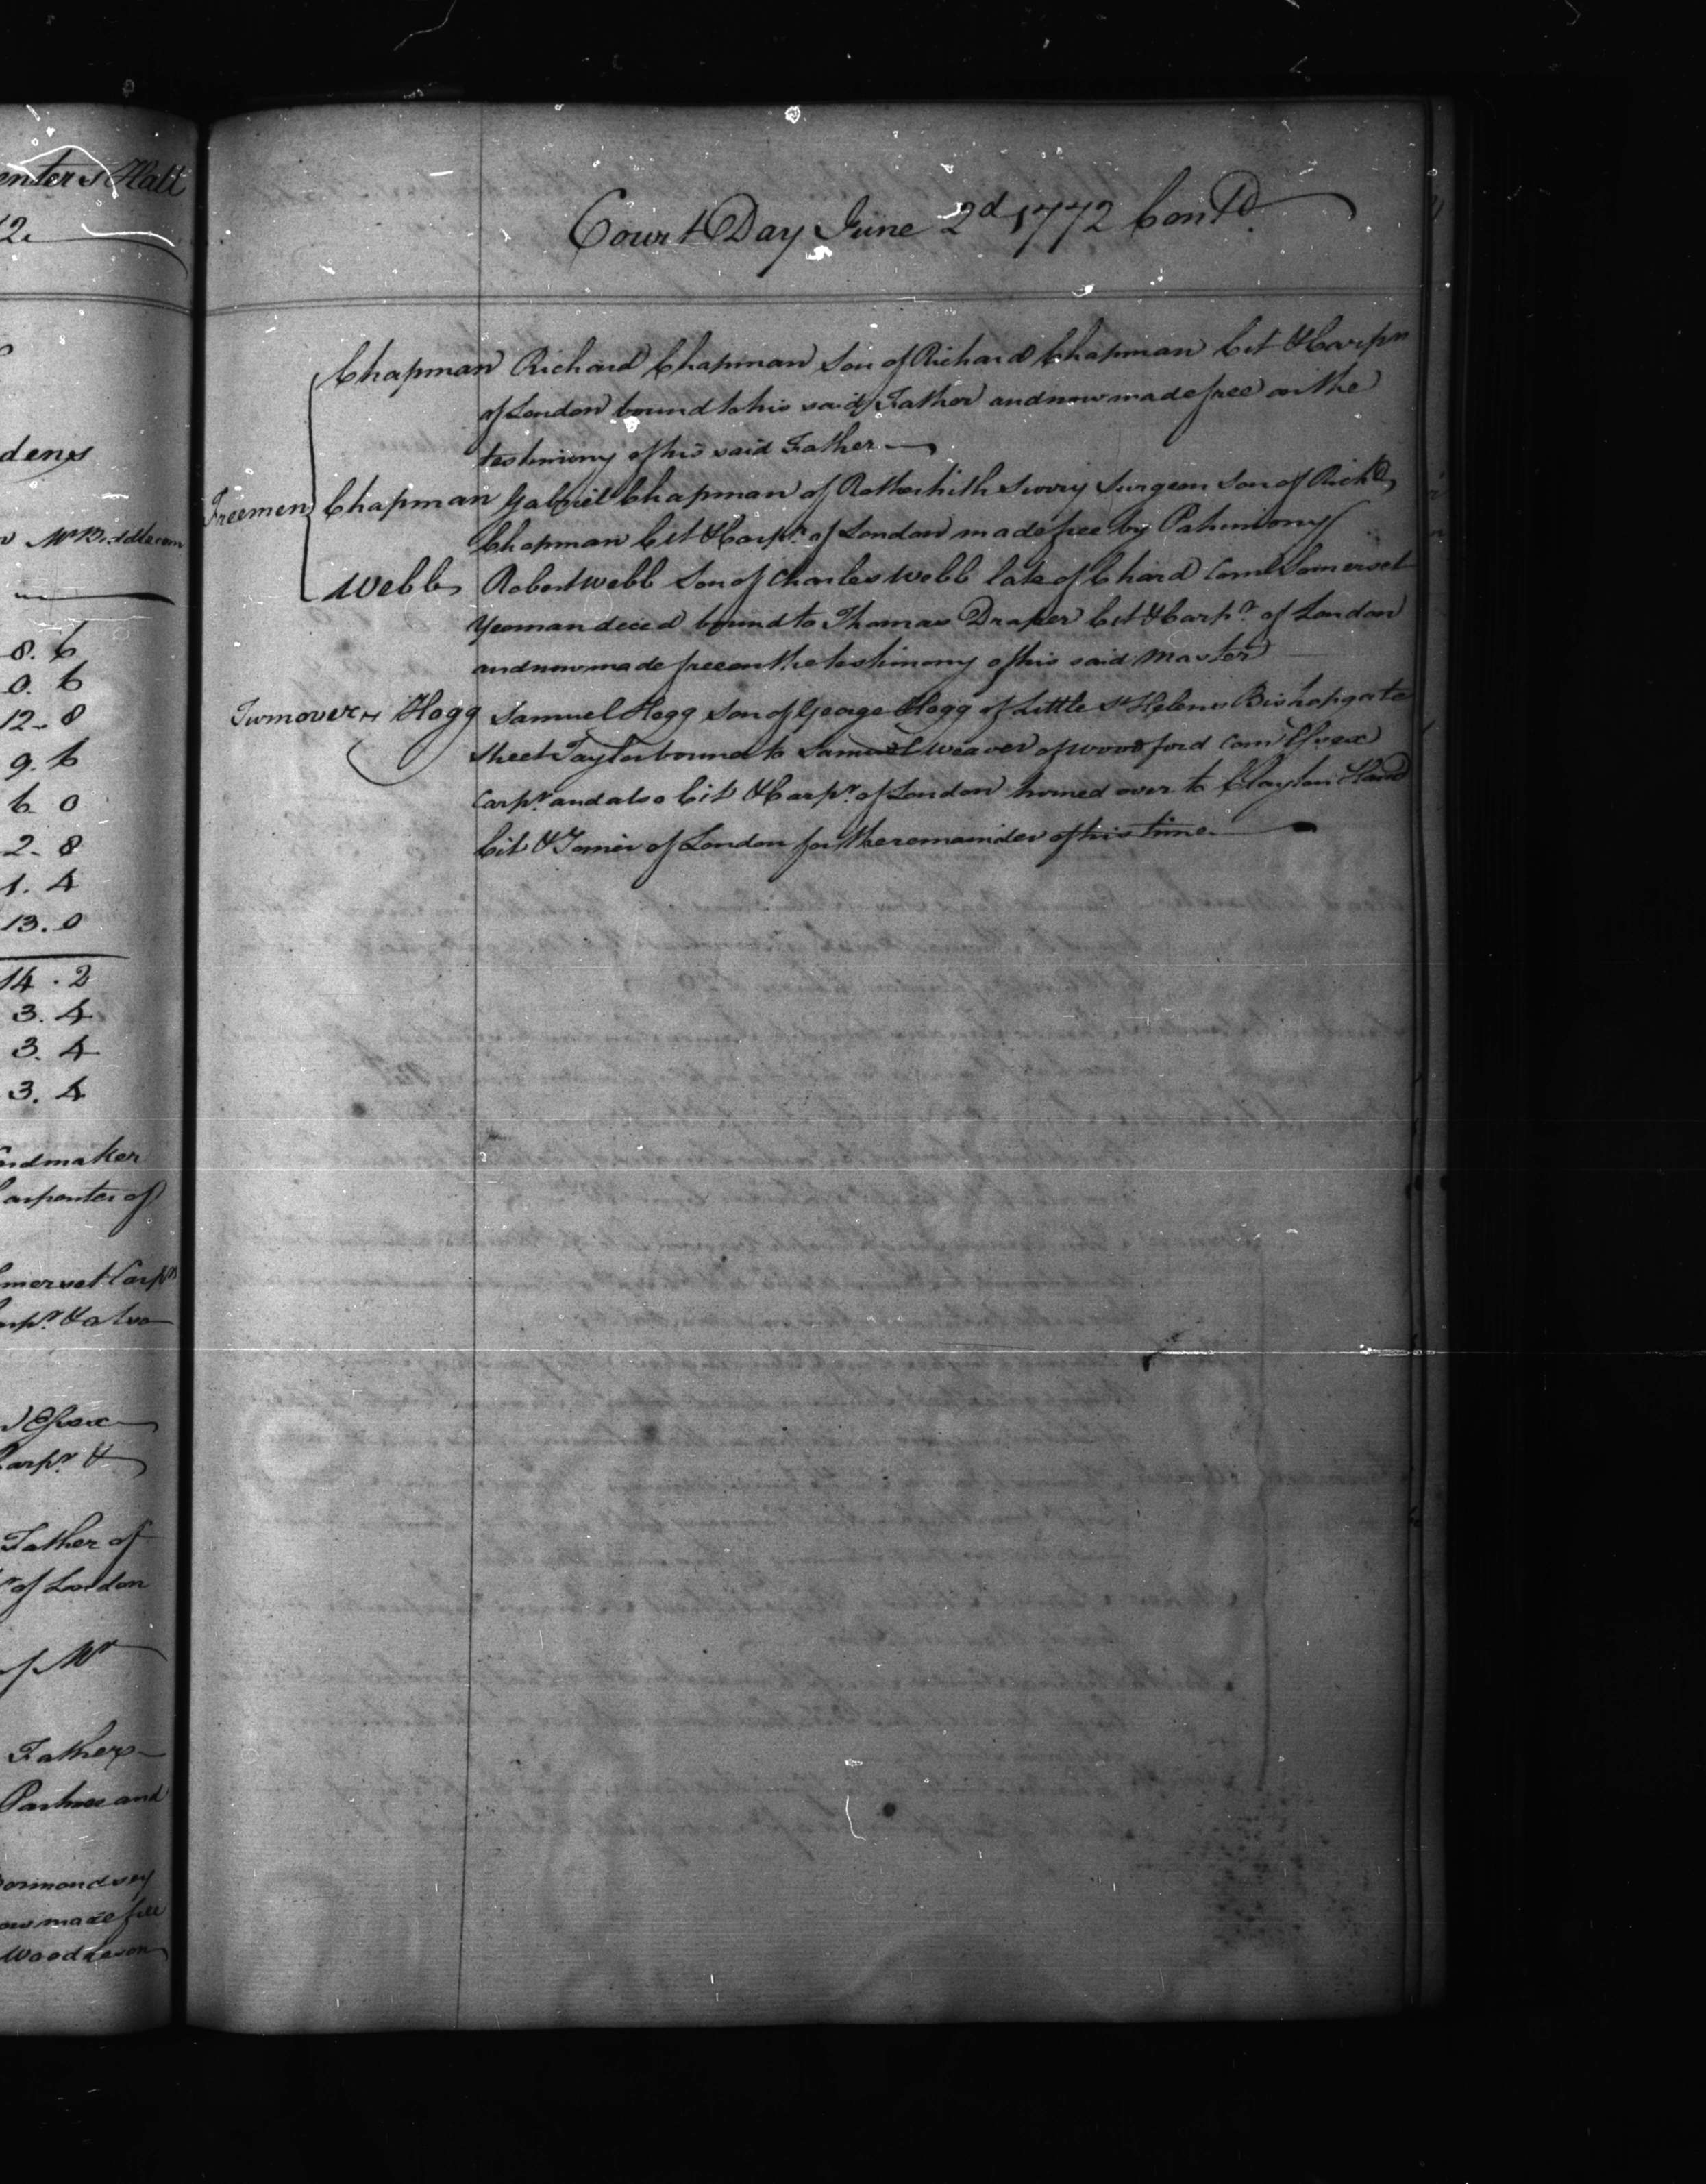 enters Hall
2.
dens
Mr Biddlecom
8. 6
0. 6
12. 8
9. 6
6 0
2. 8
1. 4
13. 0
14. 2
3. 4
3. 4
3. 4
ardmaker
Carpenter of
omerset Carpr
arpr. & also
Essex
Carpr. &
Father of
r of London
of Mr
Fathers
Partner and
ermondsey
now made free
Woodheson
Court Day June 2d 1772 Contd.
Chapman Richard Chapman Son of Richard Chapman Cit & Carpr
of London bound to his said Father and now made free on the
testimony of his said Father
Freemen Chapman Gabriel Chapman of Rotherhith Surry Surgeon Son of Richd
Chapman Cit & Carpr. of London made free by Patrimony
Webb Robert Webb Son of Charles Webb late of Chard Com Somerset
Yeoman deced bound to Thomas Draper Cit & Carpr. of London
and now made free on the testimony of his said Master
Turnovers Hogg Samuel Hogg Son of George Hogg of Little St Helens Bishopgate
street Taylor bound to Samuel Weaver of Woodford Com Essex
Carpr. and also Cit & Carpr. of London turned over to Clayton Hand
Cit & Joiner of London for the remainder of his time